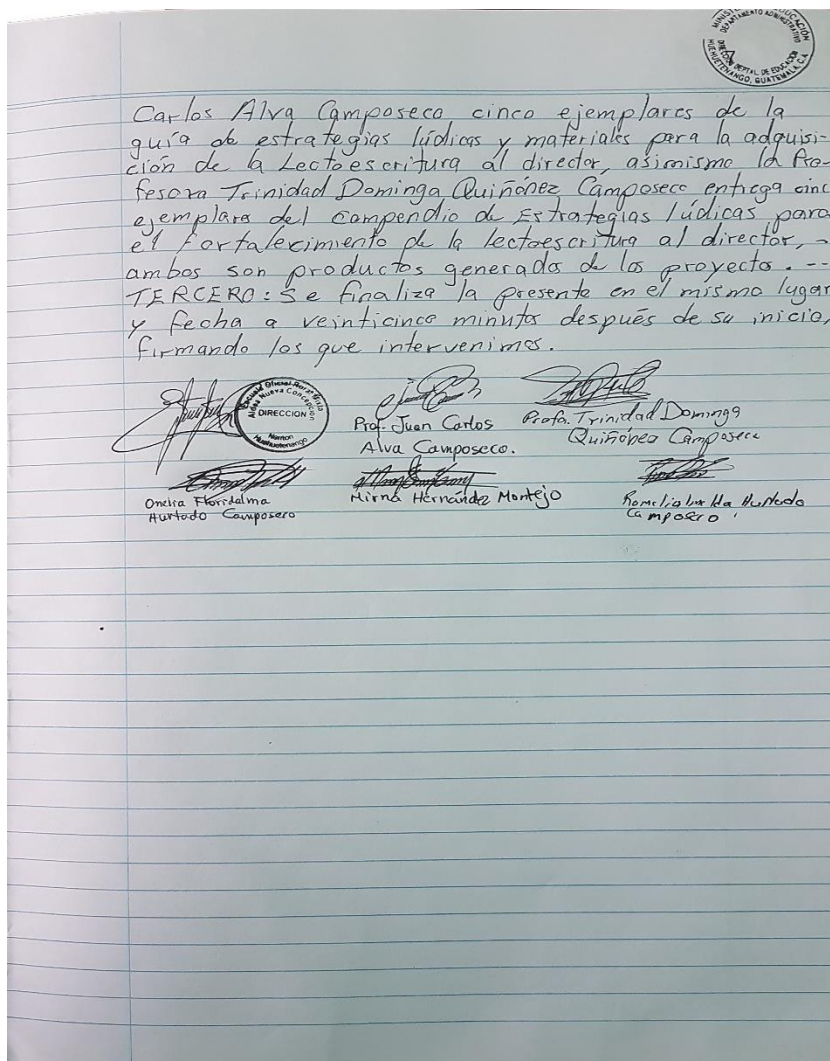 MINISTERIO DE EDUCACIÓN
DEPARTAMENTO ADMINISTRATIVO
DIRECCIÓN DEPTAL. DE EDUCACIÓN
HUEHUETENANGO, GUATEMALA, C.A.
Carlos Alva Camposeco cinco ejemplares de la
guía de estrategias lúdicas y materiales para la adquisi-
ción de la Lectoescritura al director, asimismo la Pro-
fesora Trinidad Dominga Quiñónez Camposeco entrega cinc
ejemplara del compendio de Estrategias lúdicas para
el Fortalecimiento de la lectoescritura al director, -
ambos son productos generados de los proyecto. --
TERCERO: Se finaliza la presente en el mismo lugar
y fecha a veinticinco minutos después de su inicio,
firmando los que intervenimos.
Escuela Oficial Rural Mixta
Aldea Nueva Concepción
DIRECCION
Huehuetenango
Prof. Juan Carlos
Alva Camposeco.
Profa. Trinidad Dominga
Quiñónez Camposeco
Onelia Floridalma
Hurtado Camposeco
Mirna Hernández Montejo
Romelia Hurtado
Camposeco